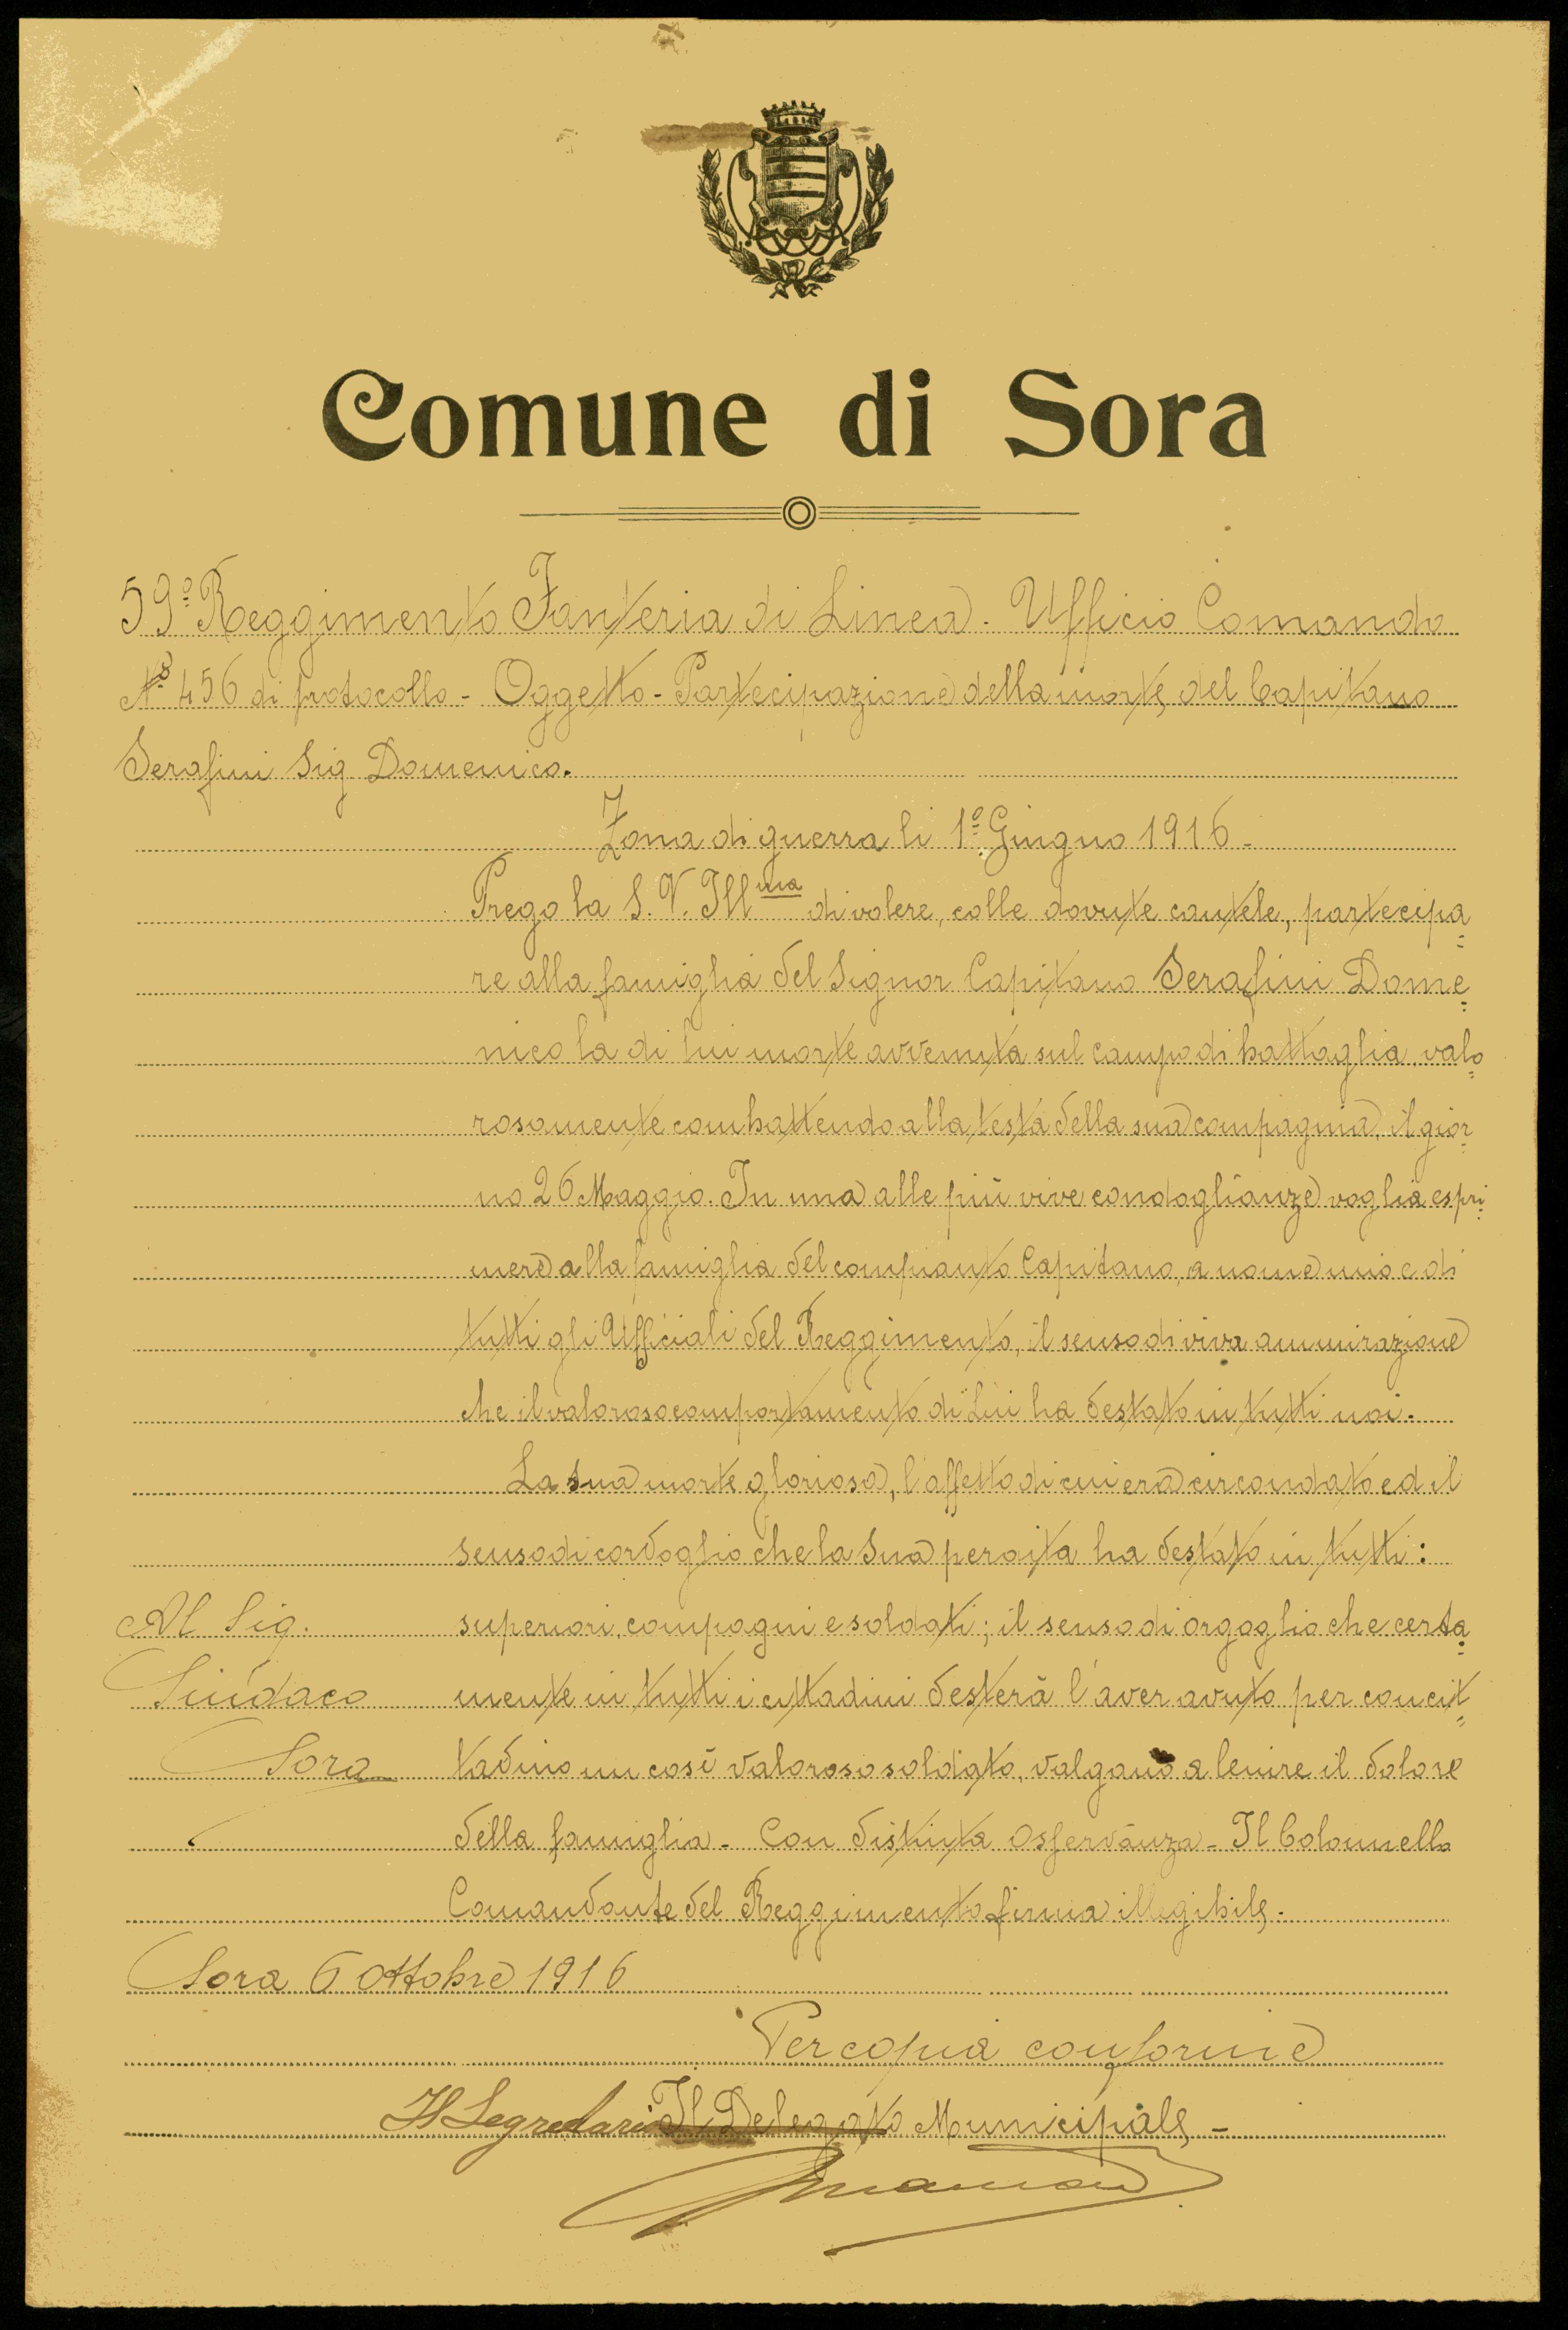 Comune di Sora
59º Reggimento Fanteria di Linea. Ufficio Comando
Nº 456 di protocollo - Oggetto - Partecipazione della morte del Capitano
Serafini Sig. Domenico.
Zona di guerra li 1º Giugno 1916.
Prego la S. V. Ill.ma di volere, colle dovute cautele, partecipa=
re alla famiglia del Signor Capitano Serafini Dome=
nico la di lui morte avvenuta sul campo di battaglia, valo=
rosamente combattendo alla testa della sua compagnia, il gior=
no 26 Maggio. In una alle più vive condoglianze voglia espri=
mere alla famiglia del compianto Capitano, a nome mio e di
tutti gli Ufficiali del Reggimento, il senso di viva ammirazione
che il valoroso comportamento di Lui ha destato in tutti noi.
La Sua morte gloriosa, l'affetto di cui era circondato ed il
senso di cordoglio che la Sua perdita ha destato in tutti:
Al Sig. superiori, compagni e soldati; il senso di orgoglio che certa=
Sindaco mente in tutti i cittadini desterà l'aver avuto per concit=
Sora tadino un così valoroso soldato, valgano a lenire il dolore
della famiglia - Con distinta osservanza - Il Colonnello
Comandante del Reggimento firma illegibile.
Sora 6 Ottobre 1916
Per copia conforme
Il Segretario Il Delegato Municipale -